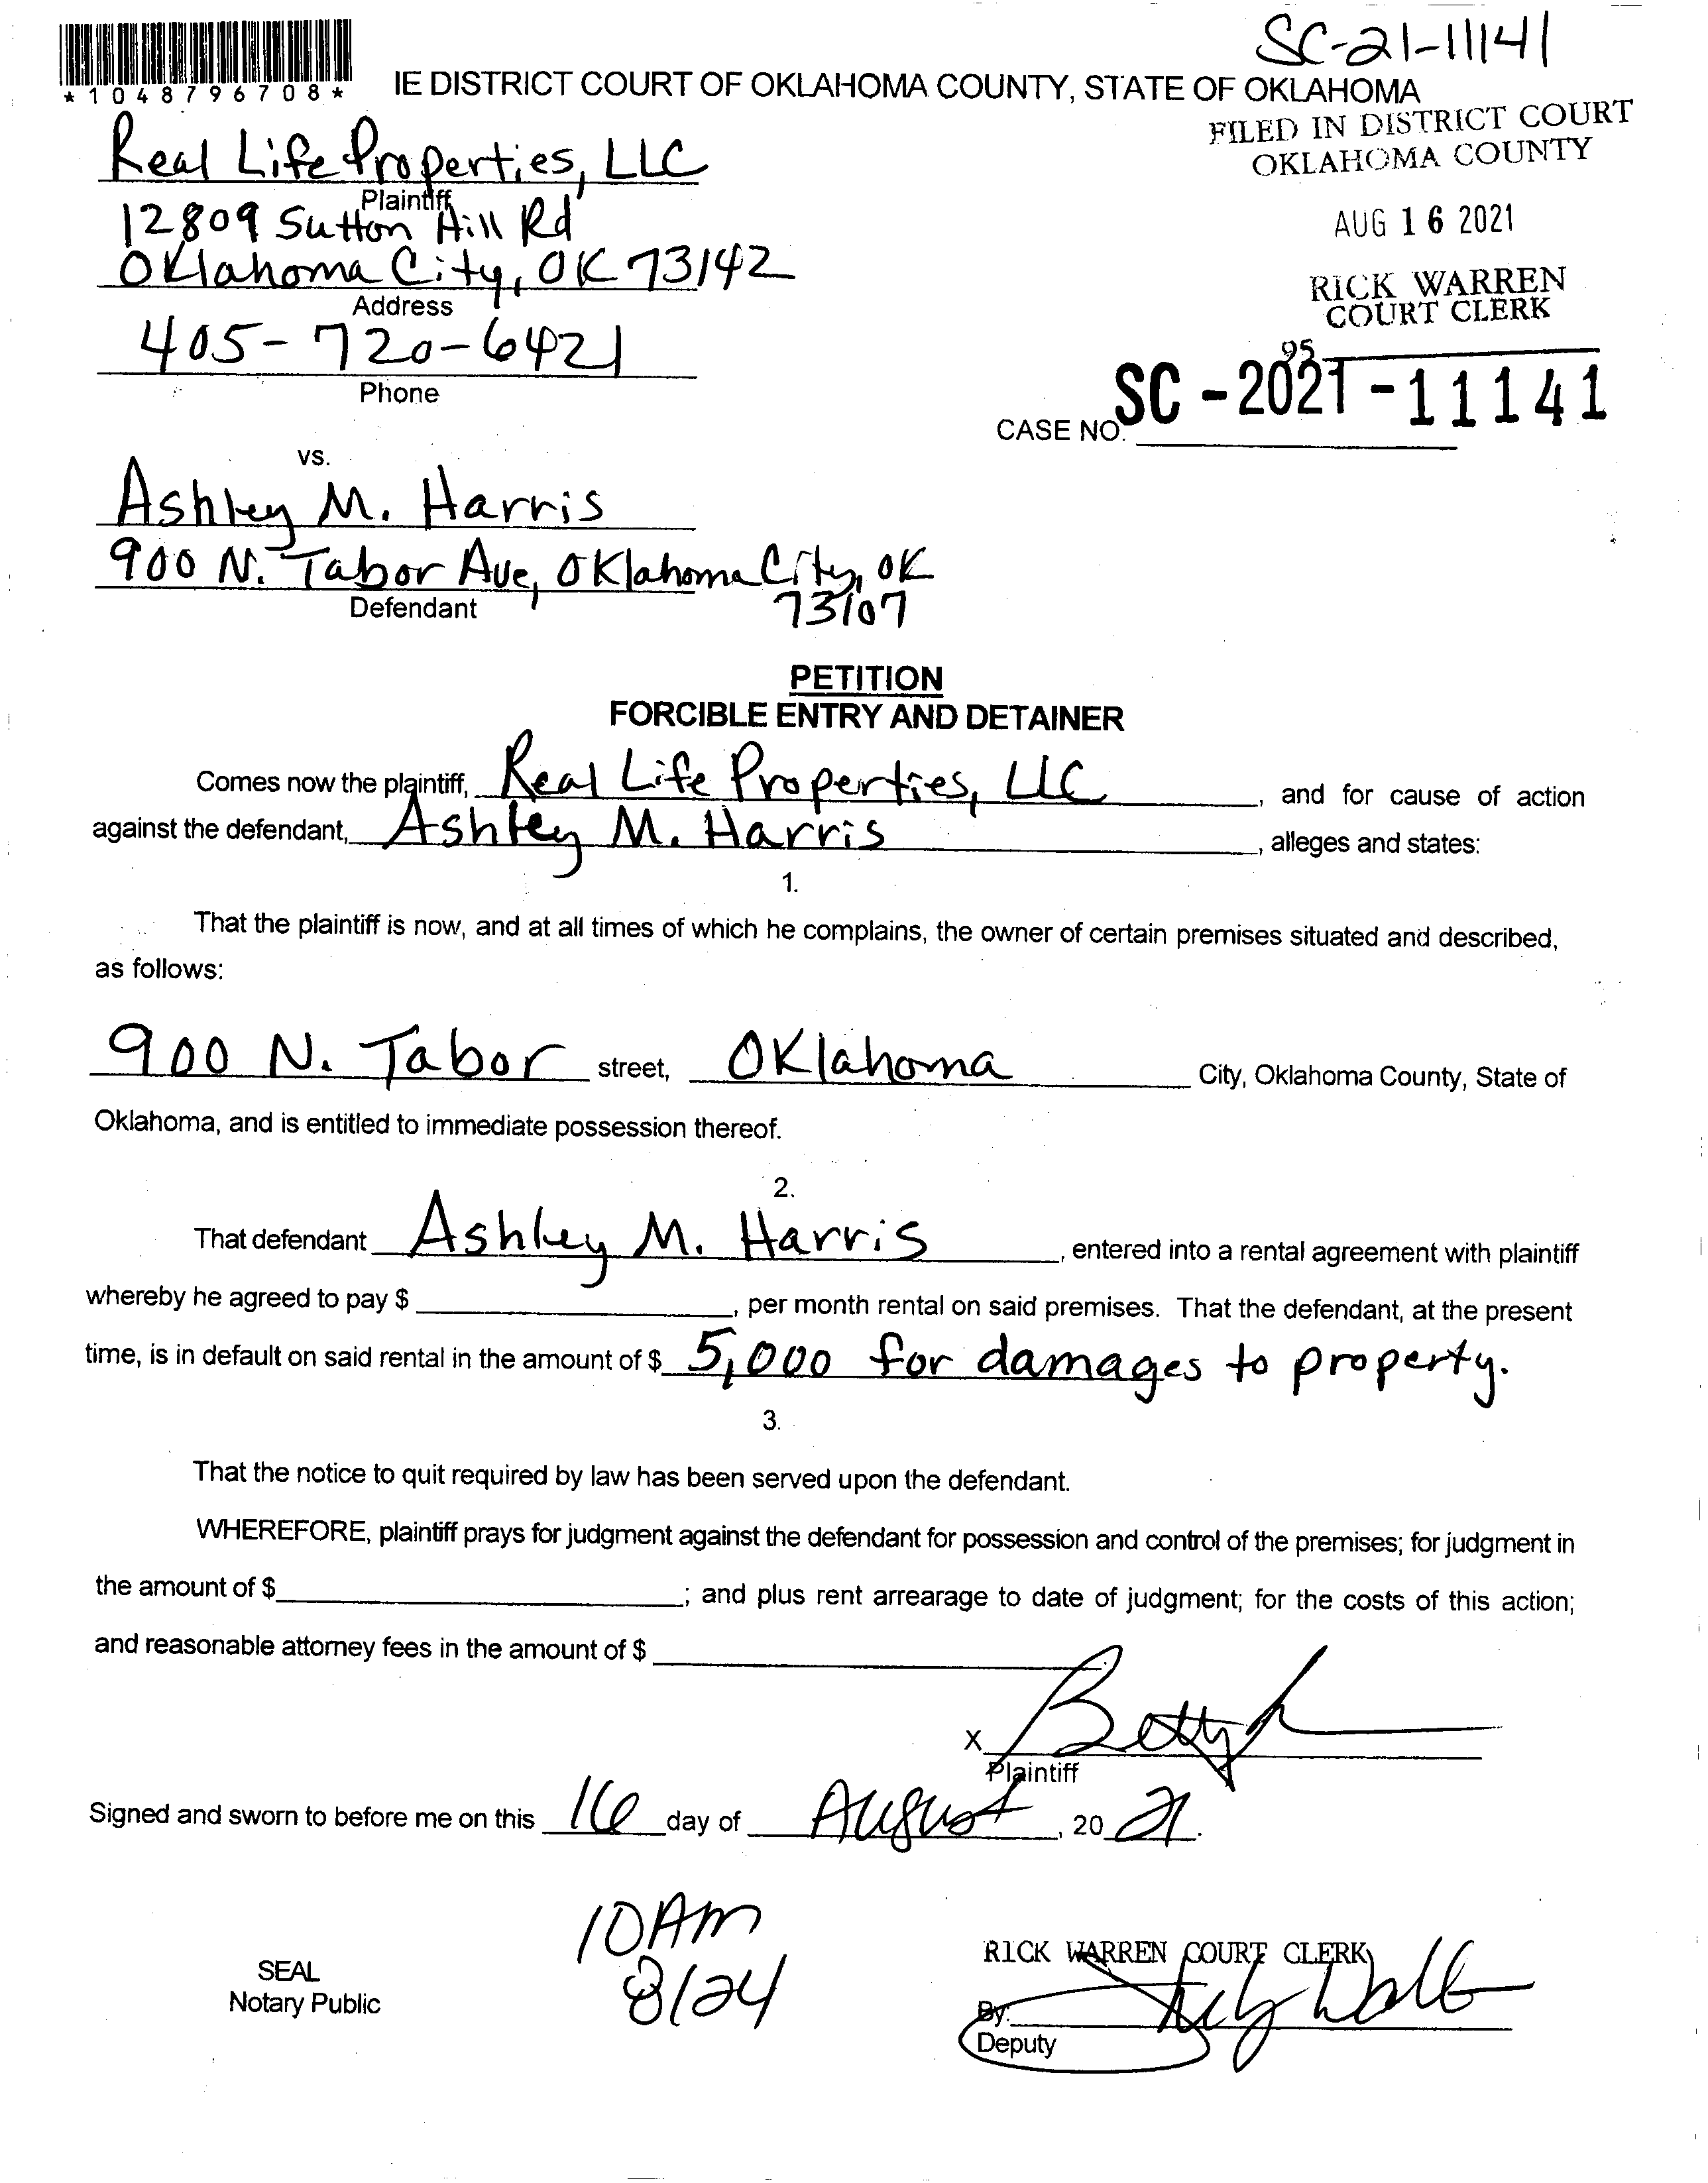 SC-21-11141
*1048796708*
IE DISTRICT COURT OF OKLAHOMA COUNTY, STATE OF OKLAHOMA
FILED IN DISTRICT COURT
OKLAHOMA COUNTY
AUG 16 2021
RICK WARREN
COURT CLERK
95
Real Life Properties, LLC
Plaintiff
12809 Sutton Hill Rd
Oklahoma City, OK 73142
Address
405-720-6421
Phone
CASE NO. SC-2021-11141
vs.
Ashley M. Harris
900 N. Tabor Ave, Oklahoma City, OK
73107
Defendant
PETITION
FORCIBLE ENTRY AND DETAINER
Comes now the plaintiff, Real Life Properties, LLC, and for cause of action
against the defendant, Ashley M. Harris, alleges and states:
1.
That the plaintiff is now, and at all times of which he complains, the owner of certain premises situated and described,
as follows:
900 N. Tabor street, Oklahoma City, Oklahoma County, State of
Oklahoma, and is entitled to immediate possession thereof.
2.
That defendant Ashley M. Harris, entered into a rental agreement with plaintiff
whereby he agreed to pay $ , per month rental on said premises. That the defendant, at the present
time, is in default on said rental in the amount of $ 5,000 for damages to property.
3.
That the notice to quit required by law has been served upon the defendant.
WHEREFORE, plaintiff prays for judgment against the defendant for possession and control of the premises; for judgment in
the amount of $ ; and plus rent arrearage to date of judgment; for the costs of this action;
and reasonable attorney fees in the amount of $
X
Plaintiff
Signed and sworn to before me on this 16 day of August, 20 21.
10AM
8/24
SEAL
Notary Public
RICK WARREN COURT CLERK
By:
Deputy